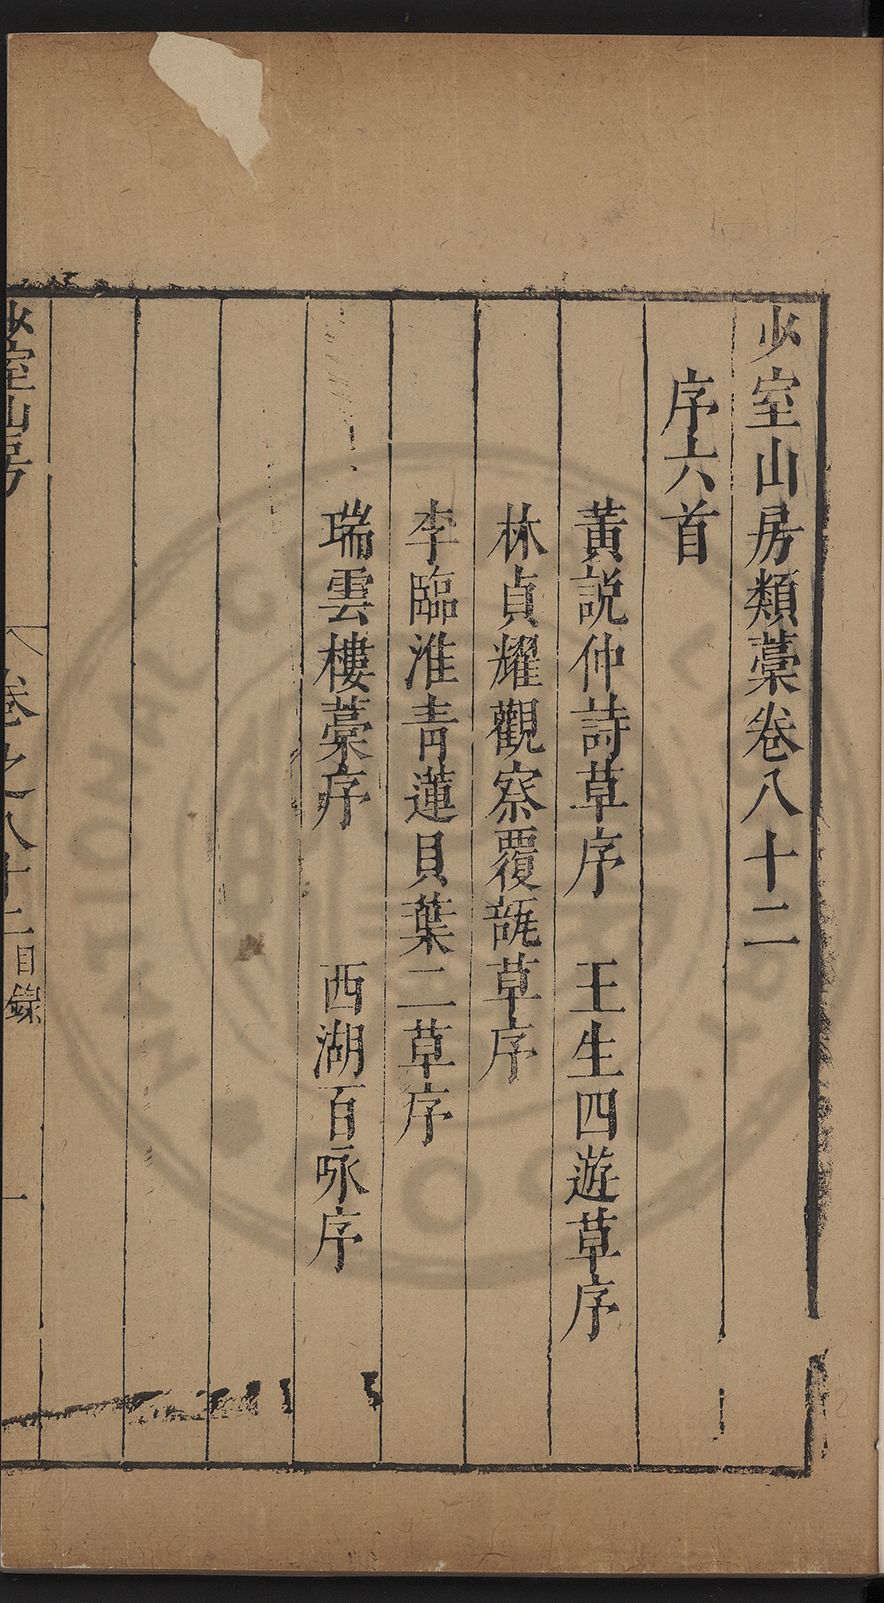 少室山房類藁卷八十二
序六首
黃説仲詩草序　王生四遊草序
林貞耀觀察覆瓿草序
李臨淮青蓮貝葉二草序
瑞雲樓藁序　西湖百咏序
少室山房　卷之八十二目錄　一